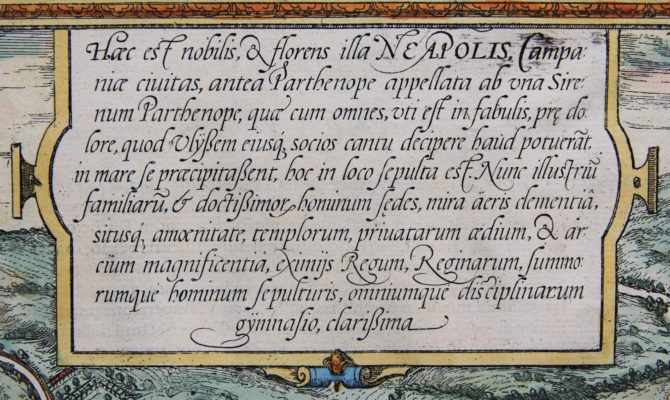 Hæc est nobilis, & florens illa NEAPOLIS, Campa-
niæ ciuitas, antea Parthenope appellata ab vna Sire-
num Parthenope, quæ cum omnes, vti est in fabulis, prę do-
lore, quod Vlÿßem eiusq́; socios cantu decipere haud potuerāt,
in mare se præcipitaßent, hoc in loco sepulta est. Nunc illustriū
familiarū, & doctißimor, hominum sędes, mira äeris clementiâ,
situsq́; amœnitate, templorum, priuatarum ædium, & ar-
cium magnificentiâ, eximijs Regum, Reginarum, summo-
rumque hominum sepulturis, omniumque disciplinarum
gÿmnasio, clarißima